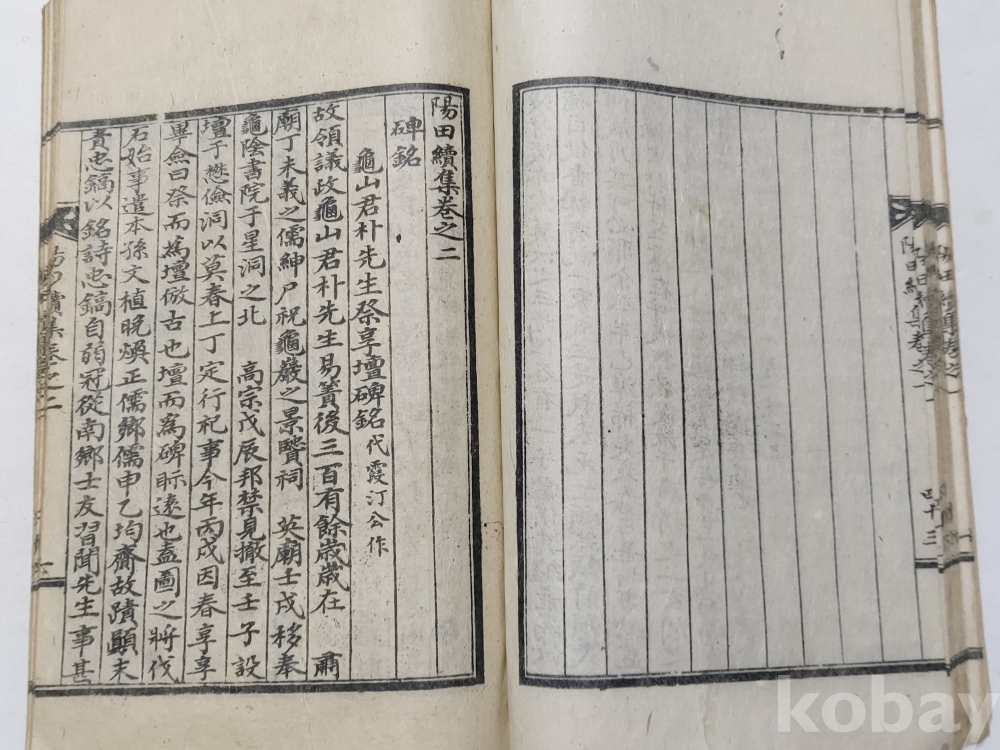 陽田續集卷之二
碑銘
龜山君朴先生祭享壇碑銘 代霞汀公作
故領議政龜山君朴先生易簀後三百有餘歲歲在 肅
廟丁未義之儒紳尸祝龜巖之景賢祠 英廟壬戌移奉
龜陰書院于星洞之北 高宗戊辰邦禁見撤至壬子設
壇于懋儉洞以莫春上丁定行祀事今年丙戌因春享享
畢僉曰祭而爲壇倣古也壇而爲碑眎遠也盍圖之將伐
石始事遣本孫文植晩煥正儒鄉儒申乙均齋故蹟顚末
責忠鎬以銘詩忠鎬自弱冠從南鄉士友習聞先生事甚
續集卷之二
陽田續集卷之一
四十三
kobay